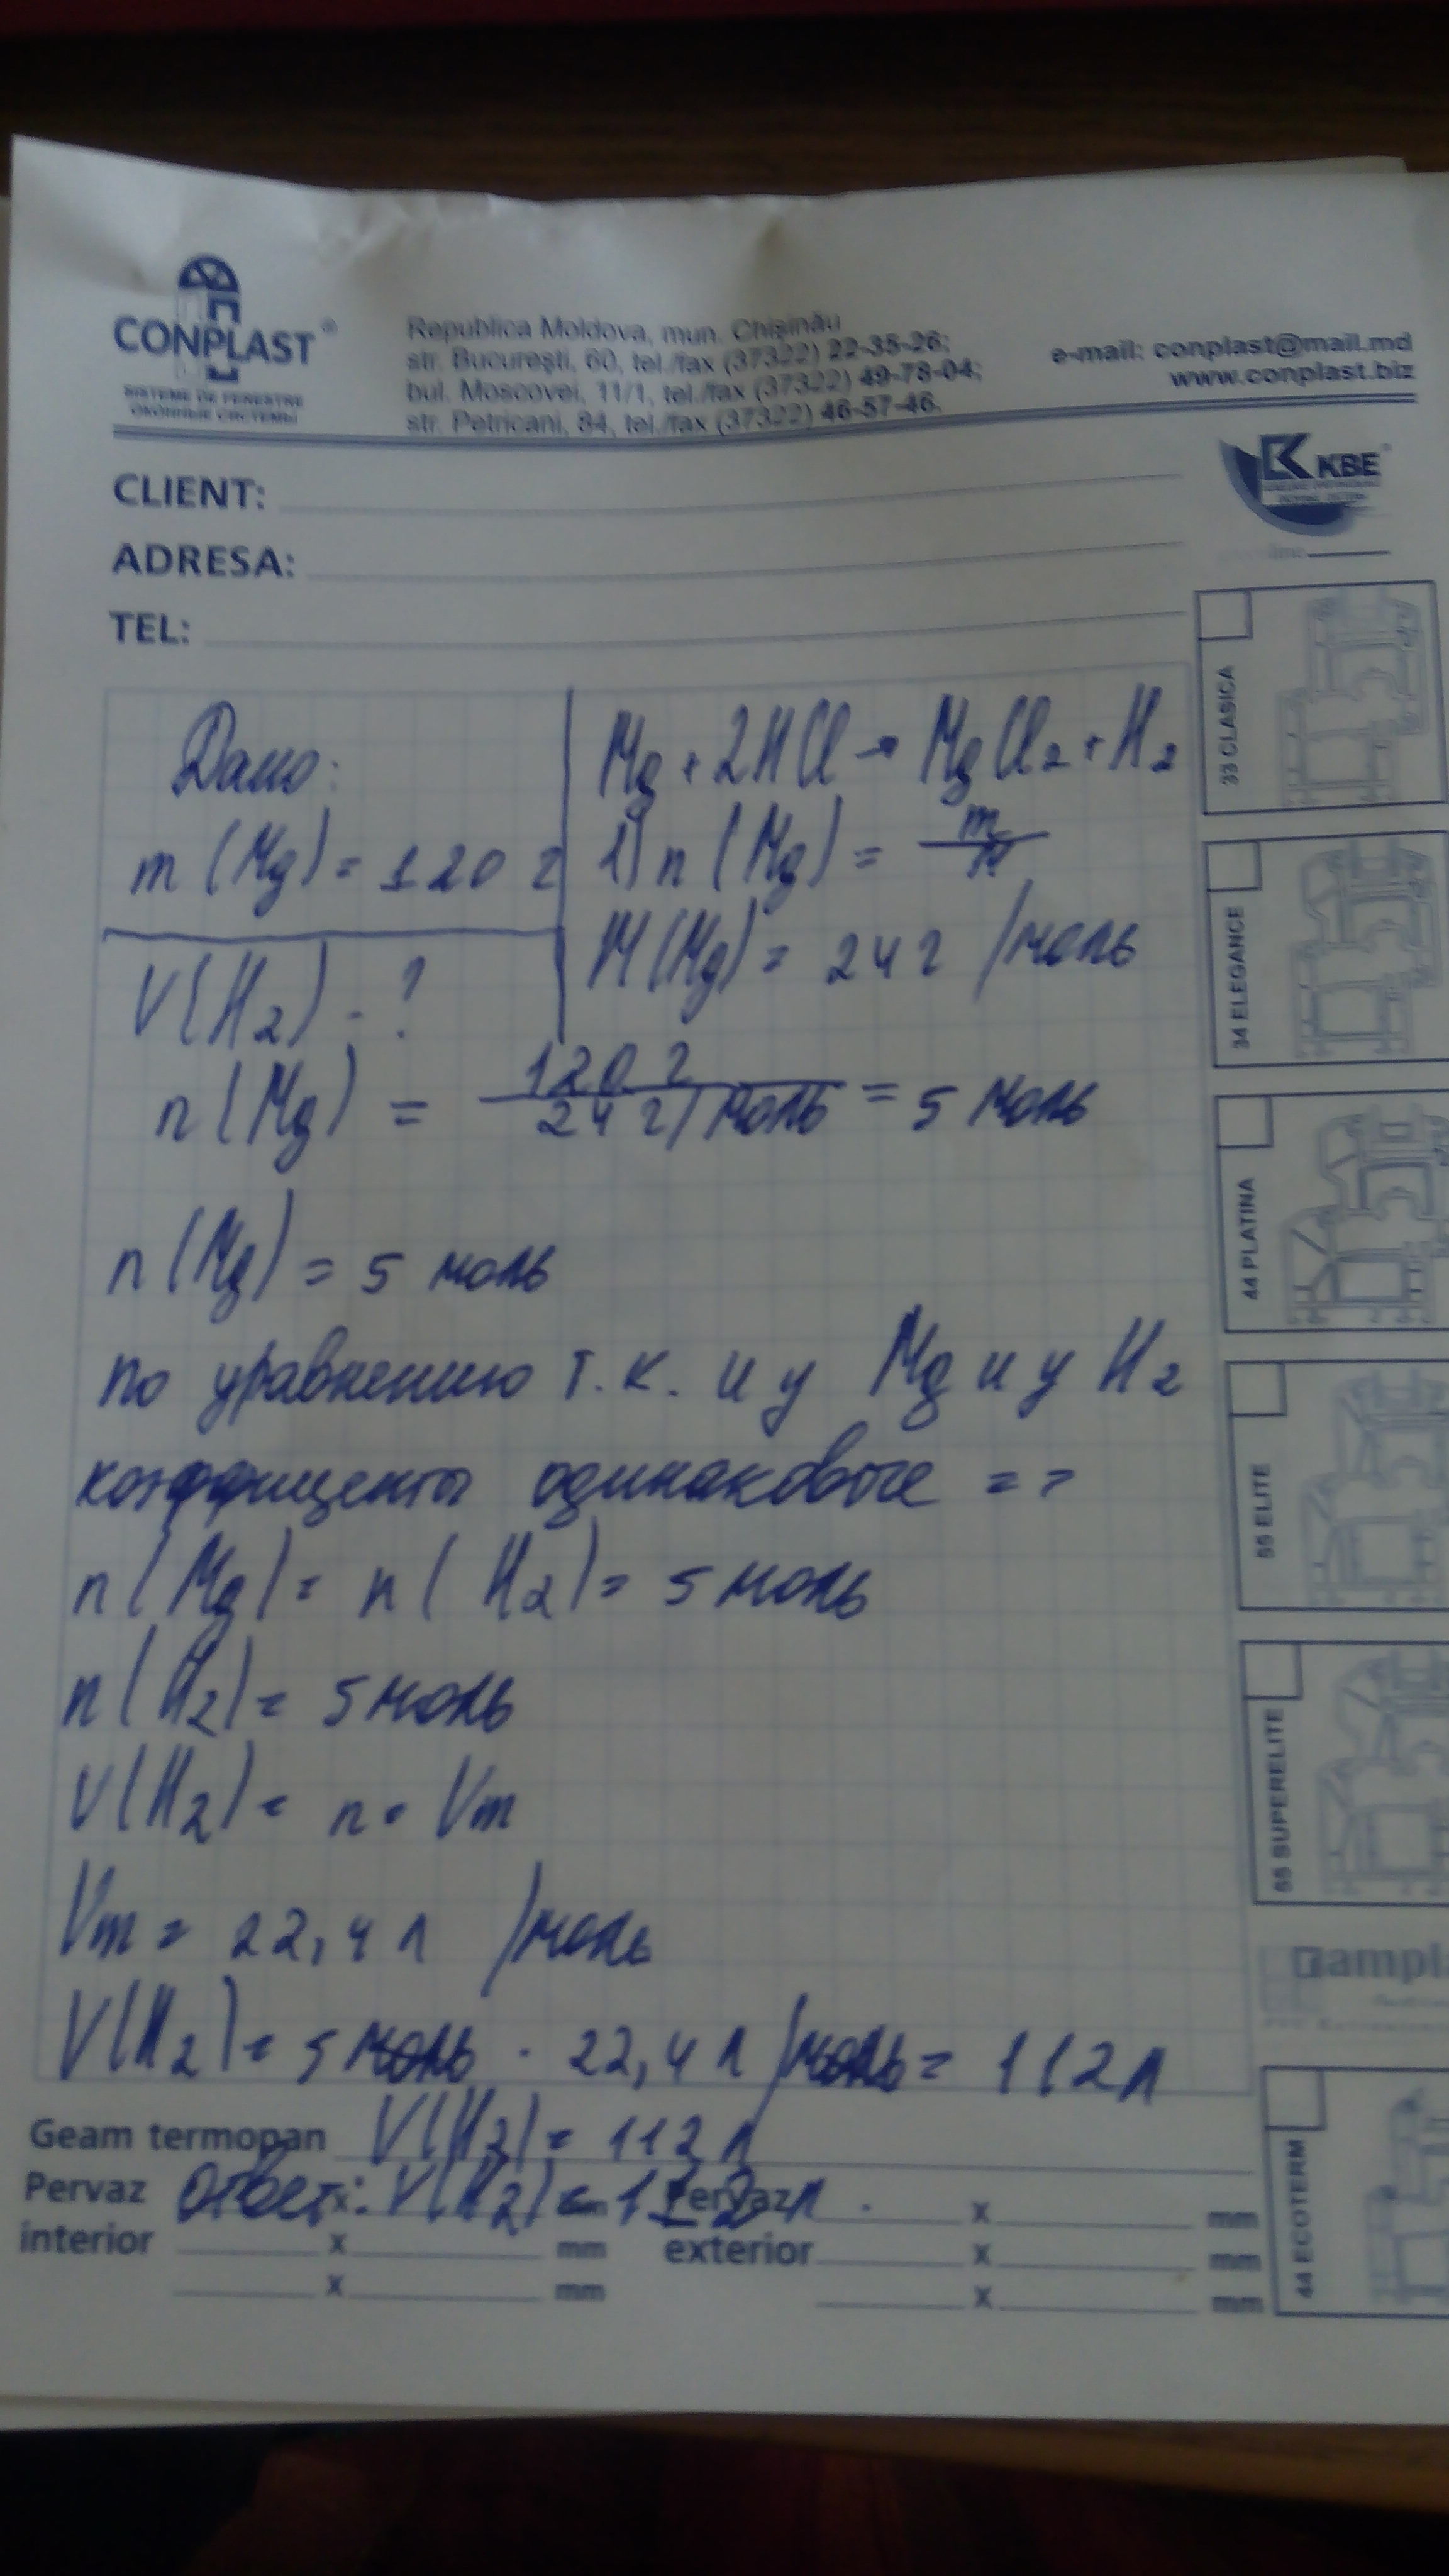 CONPLAST®
SISTEME DE FERESTRE
ОКОННЫЕ СИСТЕМЫ
Republica Moldova, mun. Chişinău
str. Bucureşti, 60, tel./fax (37322) 22-35-26;
bul. Moscovei, 11/1, tel./fax (37322) 49-78-04;
str. Petricani, 84, tel./fax (37322) 46-57-46.
e-mail: conplast@mail.md
www.conplast.biz
KBE
CLIENT:
ADRESA:
TEL:
Дано:
m (Mg) = 120 г
V(H2) - ?
Mg + 2HCl → MgCl2 + H2
1) n (Mg) = m/M
M(Mg) = 24 г /моль
n (Mg) = 120 г / 24 г/моль = 5 моль
n (Mg) = 5 моль
по уравнению т.к. и у Mg и у H2
коэффиценты одинаковые =>
n (Mg) = n ( H2) = 5 моль
n (H2) = 5 моль
V(H2) = n · Vm
Vm = 22,4 л /моль
V(H2) = 5 моль · 22,4 л /моль = 112 л
Geam termopan V(H2) = 112 л
Ответ: V(H2) = 112 л.
Pervaz interior x mm
x mm
x mm
Pervaz exterior x mm
x mm
x mm
33 CLASICA
34 ELEGANCE
44 PLATINA
55 ELITE
55 SUPERELITE
44 ECOTERM